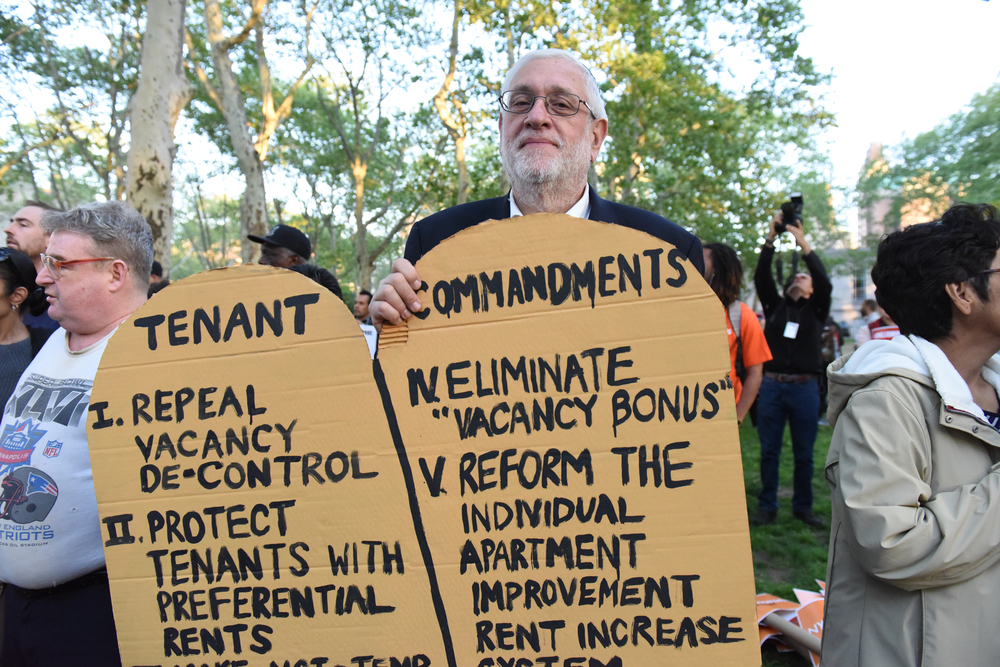 TENANT
I. REPEAL
VACANCY
DE-CONTROL
II. PROTECT
TENANTS WITH
PREFERENTIAL
RENTS
COMMANDMENTS
IV. ELIMINATE
"VACANCY BONUS"
V. REFORM THE
INDIVIDUAL
APARTMENT
IMPROVEMENT
RENT INCREASE
SYSTEM
XLVI
NFL
PATRIOTS